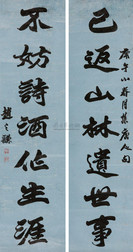 已返山林遺世事
不妨詩酒作生涯
趙之謙